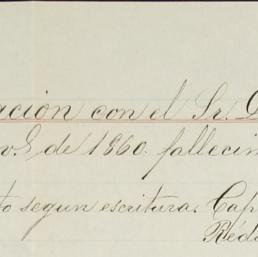 ación con el Sr. D
v.S de 1860. fallecim
to segun escritura. Cap
Rédi